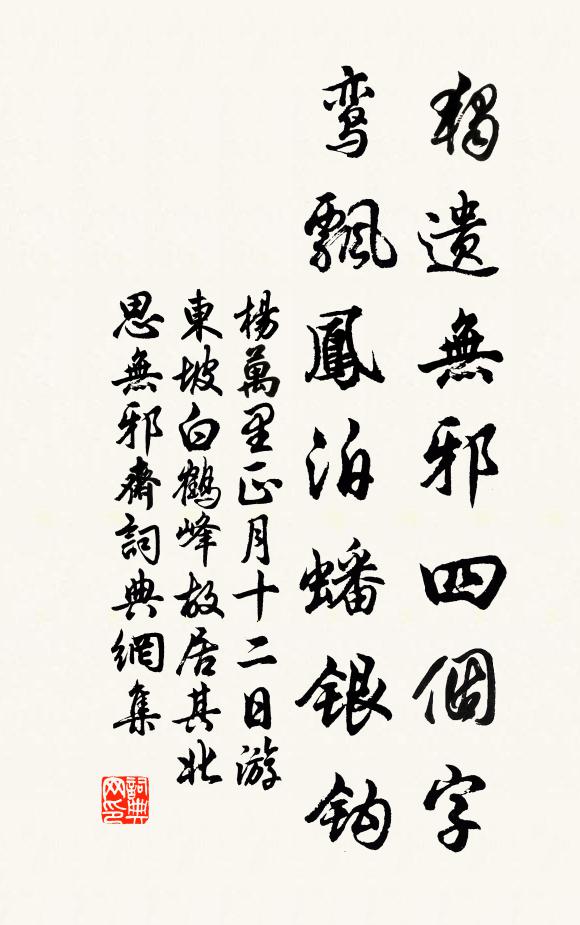 獨遺無邪四個字
鸾飄鳳泊蟠銀鈎
楊萬里正月十二日游
東坡白鶴峰故居其北
思無邪齋詞典網集
詞典网印